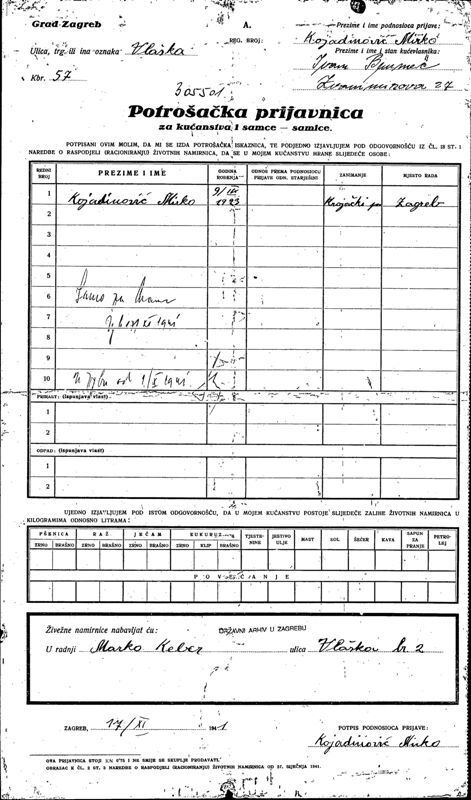 Grad Zagreb
A.
REG. BROJ:
Prezime i ime podnosioca prijave:
Kojadinović Mirko
Ulica, trg ili ina oznaka Vlaška
Prezime i ime i stan kućevlasnika:
Ivan
Kbr. 57
Zvonimirova 27
305501
Potrošačka prijavnica
za kućanstva i samce — samice.
POTPISANI OVIM MOLIM, DA MI SE IZDA POTROŠAČKA ISKAZNICA, TE PODJEDNO IZJAVLJUJEM POD ODGOVORNOŠĆU IZ ČL. 18 ST. 1
NAREDBE O RASPODJELI (RACIONIRANJU) ŽIVOTNIH NAMIRNICA, DA SE U MOJEM KUĆANSTVU HRANE SLIJEDEĆE OSOBE:
REDNI BROJ
PREZIME I IME
GODINA ROĐENJA
ODNOS PREMA PODNOSIOCU PRIJAVE ODN. STARJEŠINI
ZANIMANJE
MJESTO RADA
1 Kojadinović Mirko 9/III 1923 Krojački Zagreb
2
3
4
5
6 Samo za
7
8
9
10
PRIRAST: (Ispunjava vlast)
1
2
OTPAD: (Ispunjava vlast)
1
2
UJEDNO IZJAVLJUJEM POD ISTOM ODGOVORNOŠĆU, DA U MOJEM KUĆANSTVU POSTOJE SLIJEDEĆE ZALIHE ŽIVOTNIH NAMIRNICA U
KILOGRAMIMA ODNOSNO LITRAMA:
PŠENICA
RAŽ
JEČAM
KUKURUZ
TJESTENINE
JESTIVO ULJE
MAST
SOL
ŠEĆER
KAVA
SAPUN ZA PRANJE
PETROLEJ
ZRNO BRAŠNO ZRNO BRAŠNO ZRNO BRAŠNO ZRNO KLIP BRAŠNO
POVEĆANJE
Živežne namirnice nabavljat ću:
DRŽAVNI ARHIV U ZAGREBU
U radnji Marko Keber ulica Vlaška br. 2
ZAGREB, 17/XI 1941
POTPIS PODNOSIOCA PRIJAVE:
Kojadinović Mirko
OVA PRIJAVNICA STOJI KN 0'75 I NE SMIJE SE SKUPLJE PRODAVATI.
OBRAZAC K ČL. 2 ST. 3 NAREDBE O RASPODJELI (RACIONIRANJU) ŽIVOTNIH NAMIRNICA OD 27. SIJEČNJA 1941.